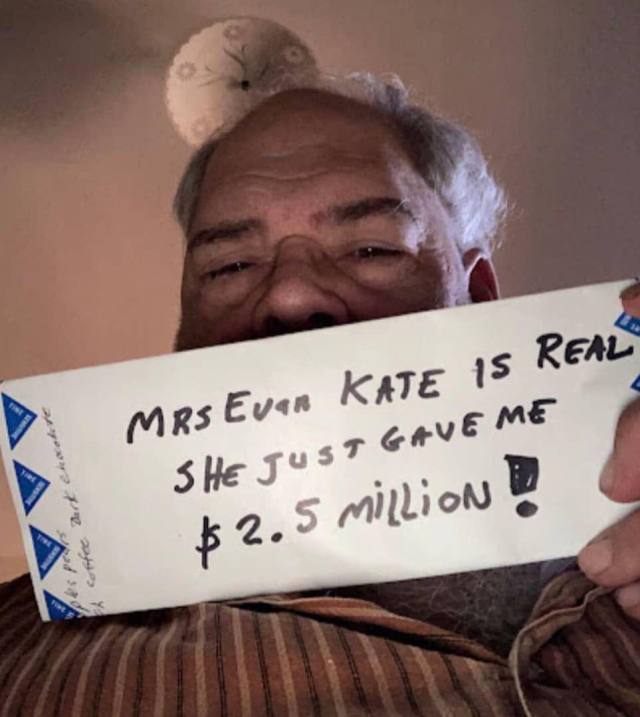 MRS EVan KATE IS REAL
SHE JUST GAVE ME
$ 2.5 MiLLiON !
coffee Dark chocolate